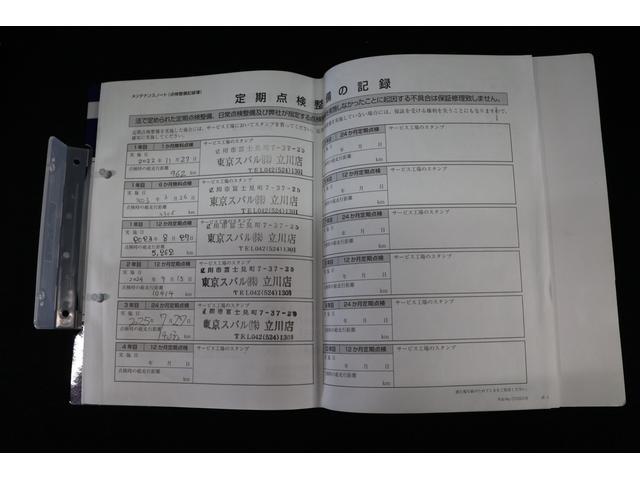 メンテナンスノート（点検整備記録簿）
定期点検整備の記録
法で定められた定期点検整備、日常点検整備及び弊社が指定する点検
定期点検整備を実施した場合には、サービス工場においてスタンプを
確実に実施してください。
1年目 1か月無料点検
サービス工場のスタンプ
実施日
2022年11月27日
点検時の総走行距離
962 km
立川市富士見町7-37-25
東京スバル㈱ 立川店
TEL042(524)1301
1年目 6か月無料点検
サービス工場のスタンプ
実施日
点検時の総走行距離
km
立川市富士見町7-37-25
東京スバル㈱ 立川店
TEL042(524)1301
1年目 12か月定期点検
サービス工場のスタンプ
実施日
2023年8月27日
点検時の総走行距離
5,262 km
立川市富士見町7-37-25
東京スバル㈱ 立川店
TEL042(524)1301
2年目 12か月定期点検
サービス工場のスタンプ
実施日
2024年9月15日
点検時の総走行距離
km
立川市富士見町7-37-25
東京スバル㈱ 立川店
TEL042(524)1301
3年目 24か月定期点検
サービス工場のスタンプ
実施日
2025年7月27日
点検時の総走行距離
km
立川市富士見町7-37-29
東京スバル㈱ 立川店
TEL042(524)1301
4年目 12か月定期点検
サービス工場のスタンプ
実施日
年 月 日
点検時の総走行距離
km
実施しなかったことに起因する不具合は保証修理致しません。
していない場合には、保証を受ける権利を失うことにもなりますので、
24か月定期点検
サービス工場のスタンプ
年 月 日
km
12か月定期点検
サービス工場のスタンプ
年 月 日
km
24か月定期点検
サービス工場のスタンプ
年 月 日
km
12か月定期点検
サービス工場のスタンプ
年 月 日
km
24か月定期点検
サービス工場のスタンプ
年 月 日
km
12か月定期点検
サービス工場のスタンプ
年 月 日
km